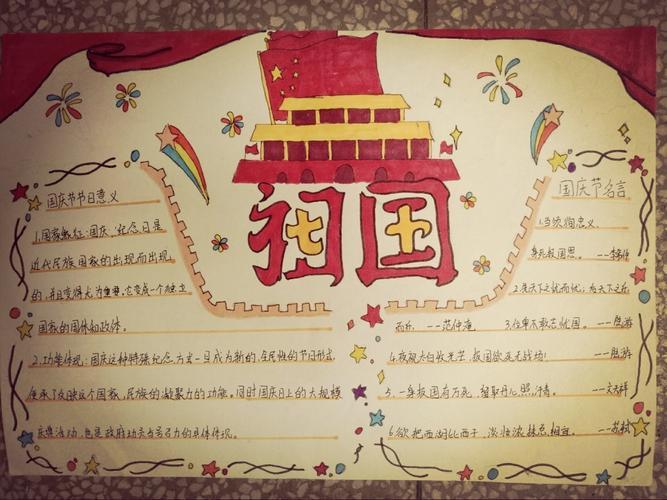 祖国
国庆节节日意义
1.国家象征:国庆纪念日是
近代民族国家的出现而出现,
的,并且变得尤为重要。它变成一个独立
国家的国体和政体。
2.功能体现:国庆这种特殊纪念方式一旦成为新的、全民性的节日形式,
便承了反映这个国家、民族的凝聚力的功能。同时国庆日上的大规模
庆典活动,也是政府动员与号召力的具体体现。
国庆节名言
1.当须徇忠义,
身死报国恩。 --李希仲
2.先天下之忧而忧;后天下之乐
而乐。 --范仲淹 3.位卑不敢忘忧国。 --陆游
4.夜视太白收光芒,报国欲死无战场! --陆游
5.一身报国有万死, 留取丹心照汗青。 --文天祥
6.欲把西湖比西子,淡妆浓抹总相宜。--苏轼